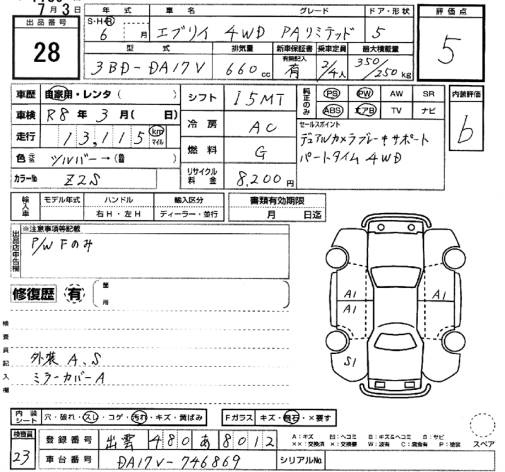 月 3 日
出品番号
28
年 式
S・H・R
6 月
車 名
グレード
ドア・形状
エブリイ 4WD PAリミテッド 5
評価点
5
型 式
排気量
新車保証書
乗車定員
最大積載量
3BD-DA17V
660 cc
有無記入
有
2/4人
350/250 kg
車歴
自家用・レンタ( )
車検
R8 年 3 月( 日)
走行
13,115 km マイル
色
ツルバー→( )
カラーNo
Z2S
シフト
I5MT
冷房
AC
燃料
G
リサイクル料金
8,200 円
純正のみ
PS PW AW SR
ABS エアB TV ナビ
セールスポイント
デュアルカメラブレーキサポート
パートタイム4WD
内装評価
b
輸入車
モデル年式
ハンドル
右H・左H
輸入区分
ディーラー・並行
書類有効期限
月 日迄
出品店申告欄
※注意事項等記載
P/W Fのみ
修復歴 有
箇所
検査員記入欄
外装 A、S
ミラーカバーA
A1
A1
A1
S1
内装シート
穴・破れ・スレ・コゲ・汚れ・キズ・黄ばみ
Fガラス
キズ・飛石・×要す
スペア
検査員
23
登録番号
出雲 480 あ 8012
車台番号
DA17V-746869
シリアルNo.
A:キズ U:ヘコミ B:キズ&ヘコミ S:サビ
XX:交換済 X:要交換 W:波有 C:腐食有 P:塗装